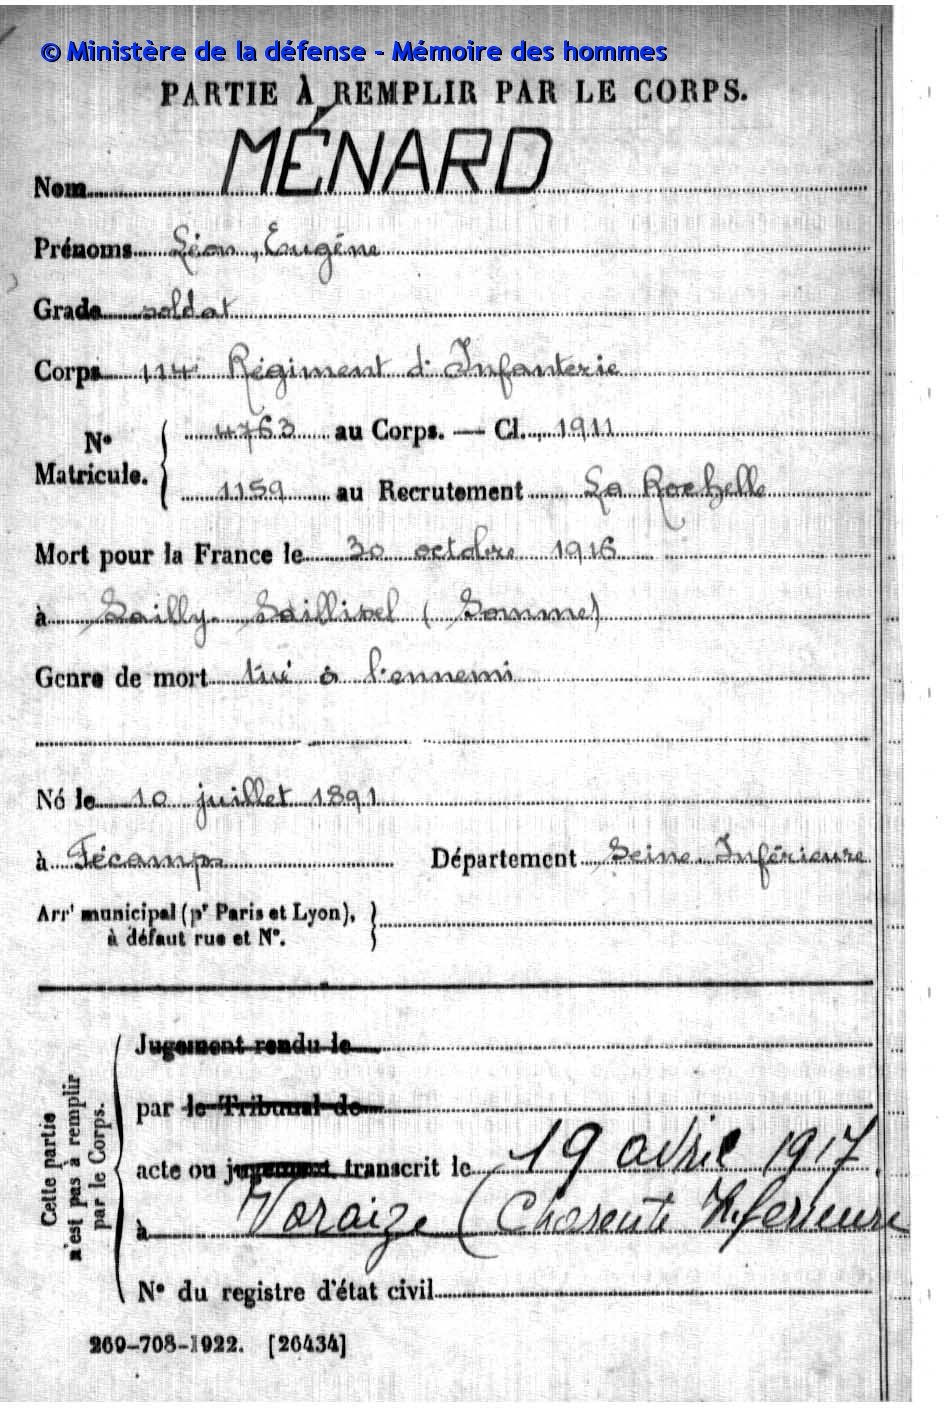 © Ministère de la défense - Mémoire des hommes
PARTIE À REMPLIR PAR LE CORPS.
Nom MÉNARD
Prénoms Léon, Eugéne
Grade soldat
Corps 114e Régiment d'Infanterie
N° Matricule. { 4763 au Corps. — Cl. 1911
1159 au Recrutement La Rochelle
Mort pour la France le 30 octobre 1916
à Sailly-Saillisel (Somme)
Genre de mort tué à l'ennemi
Né le 10 juillet 1891
à Fécamp Département Seine-Inférieure
Arrt municipal (pr Paris et Lyon), }
à défaut rue et N°.
Cette partie n'est pas à remplir par le Corps.
Jugement rendu le
par le Tribunal de
acte ou jugement transcrit le 19 avril 1917
à Varaize (Charente Inferieure
N° du registre d'état civil
269-708-1922. [26434]